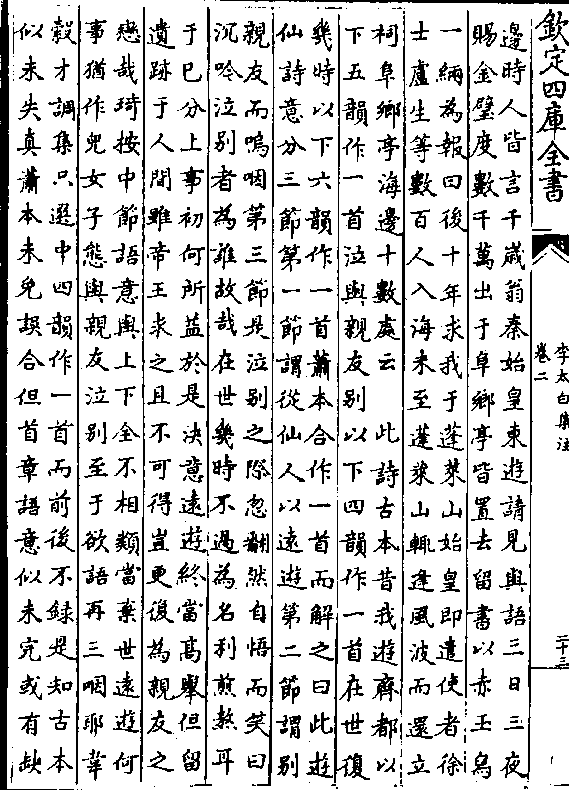 欽定四庫全書
李太白集注
卷二
二十三
邊時人皆言千歳翁秦始皇東遊請見與語三日三夜
賜金璧度數千萬出于阜鄉亭皆置去留書以赤玉舄
一緉為報曰後十年求我于蓬萊山始皇即遣使者徐
士盧生等數百人入海未至蓬萊山輒逢風波而還立
祠阜鄉亭海邊十數處云　此詩古本昔我遊齊都以
下五韻作一首泣與親友别以下四韻作一首在世復
幾時以下六韻作一首蕭本合作一首而解之曰此遊
仙詩意分三節第一節謂從仙人以遠遊第二節謂别
親友而嗚咽第三節是泣别之際忽翻然自悟而笑曰
沉吟泣别者為誰故哉在世幾時不過為名利煎熬耳
于已分上事初何所益於是決意遠遊終當高舉但留
遺跡于人間雖帝王求之且不可得豈更復為親友之
戀哉琦按中節語意與上下全不相類當棄世遠遊何
事猶作兒女子態與親友泣别至于欲語再三咽耶韋
縠才調集只選中四韻作一首而前後不録是知古本
似未失真蕭本未免誤合但首章語意似未完或有缺